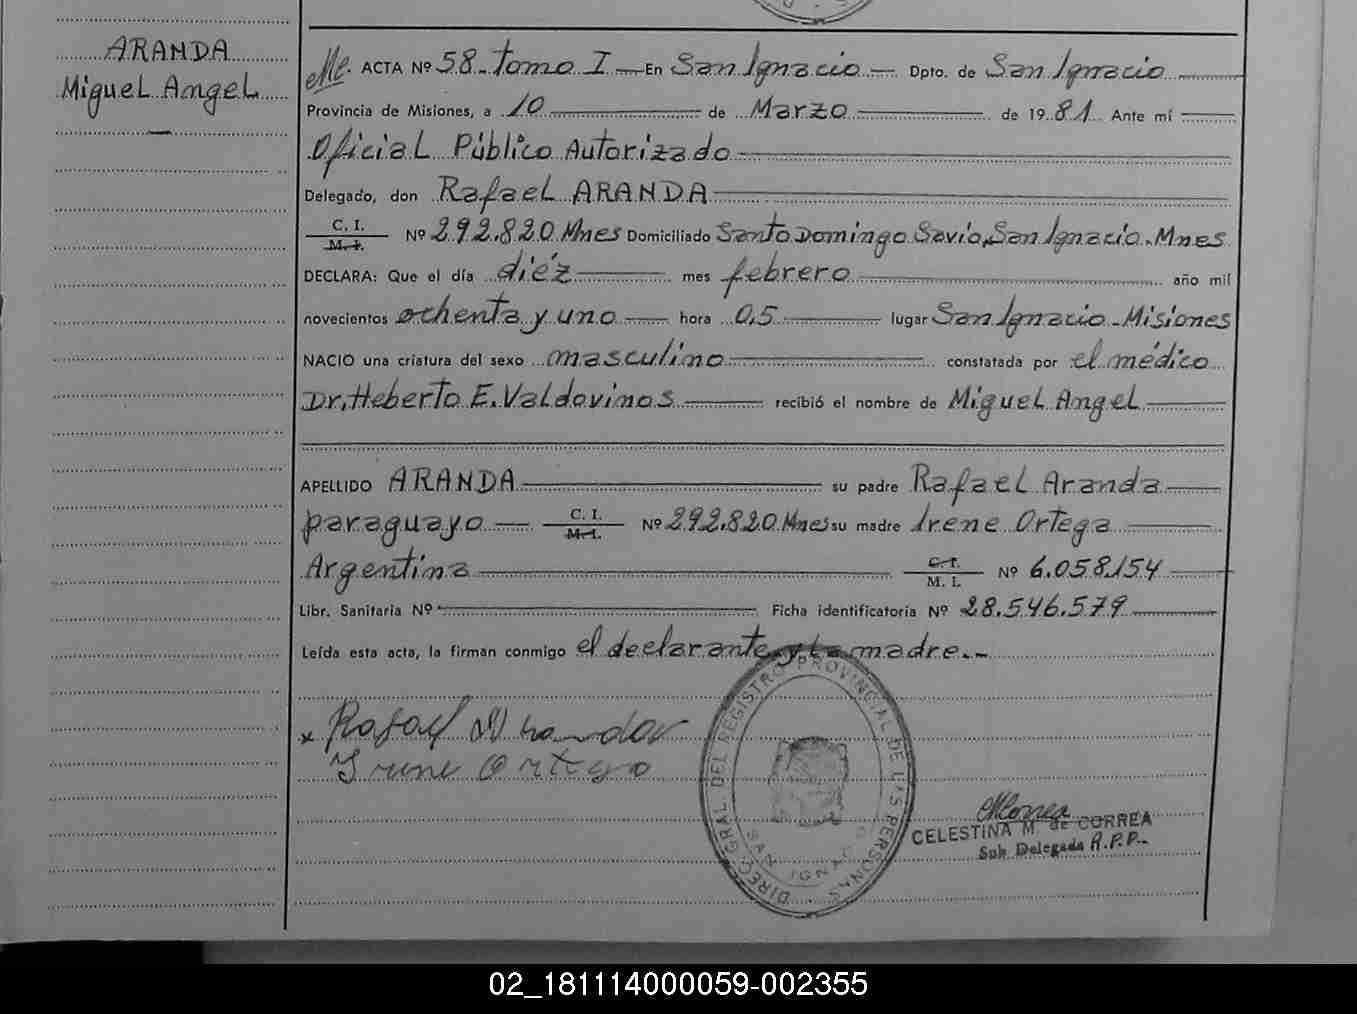 ARANDA
Miguel Angel
ACTA Nº 58 - tomo I - En San Ignacio - Dpto. de San Ignacio
Provincia de Misiones, a 10 de Marzo de 1981 Ante mí
Oficial Público Autorizado
Delegado, don Rafael ARANDA
C. I.
M. I.
Nº 292.820 Mnes Domiciliado Santo Domingo Savio, San Ignacio - Mnes
DECLARA: Que el día diéz mes febrero año mil
novecientos ochenta y uno hora 0,5 lugar San Ignacio - Misiones
NACIO una criatura del sexo masculino constatada por el médico
Dr. Heberto E. Valdovinos recibió el nombre de Miguel Angel
APELLIDO ARANDA su padre Rafael Aranda
paraguayo - C. I.
M. I.
Nº 292.820 Mnes su madre Irene Ortega
Argentina C. I.
M. I.
Nº 6.058.154
Libr. Sanitaria Nº Ficha identificatoria Nº 28.546.579
Leída esta acta, la firman conmigo el declarante y la madre.-
x Rafael Aranda
Irene Ortega
DIREC. GRAL. DEL REGISTRO PROVINCIAL DE L'S PERSONAS
SAN IGNACIO
CELESTINA M. de CORREA
Sub Delegada R.P.P.
02_181114000059-002355